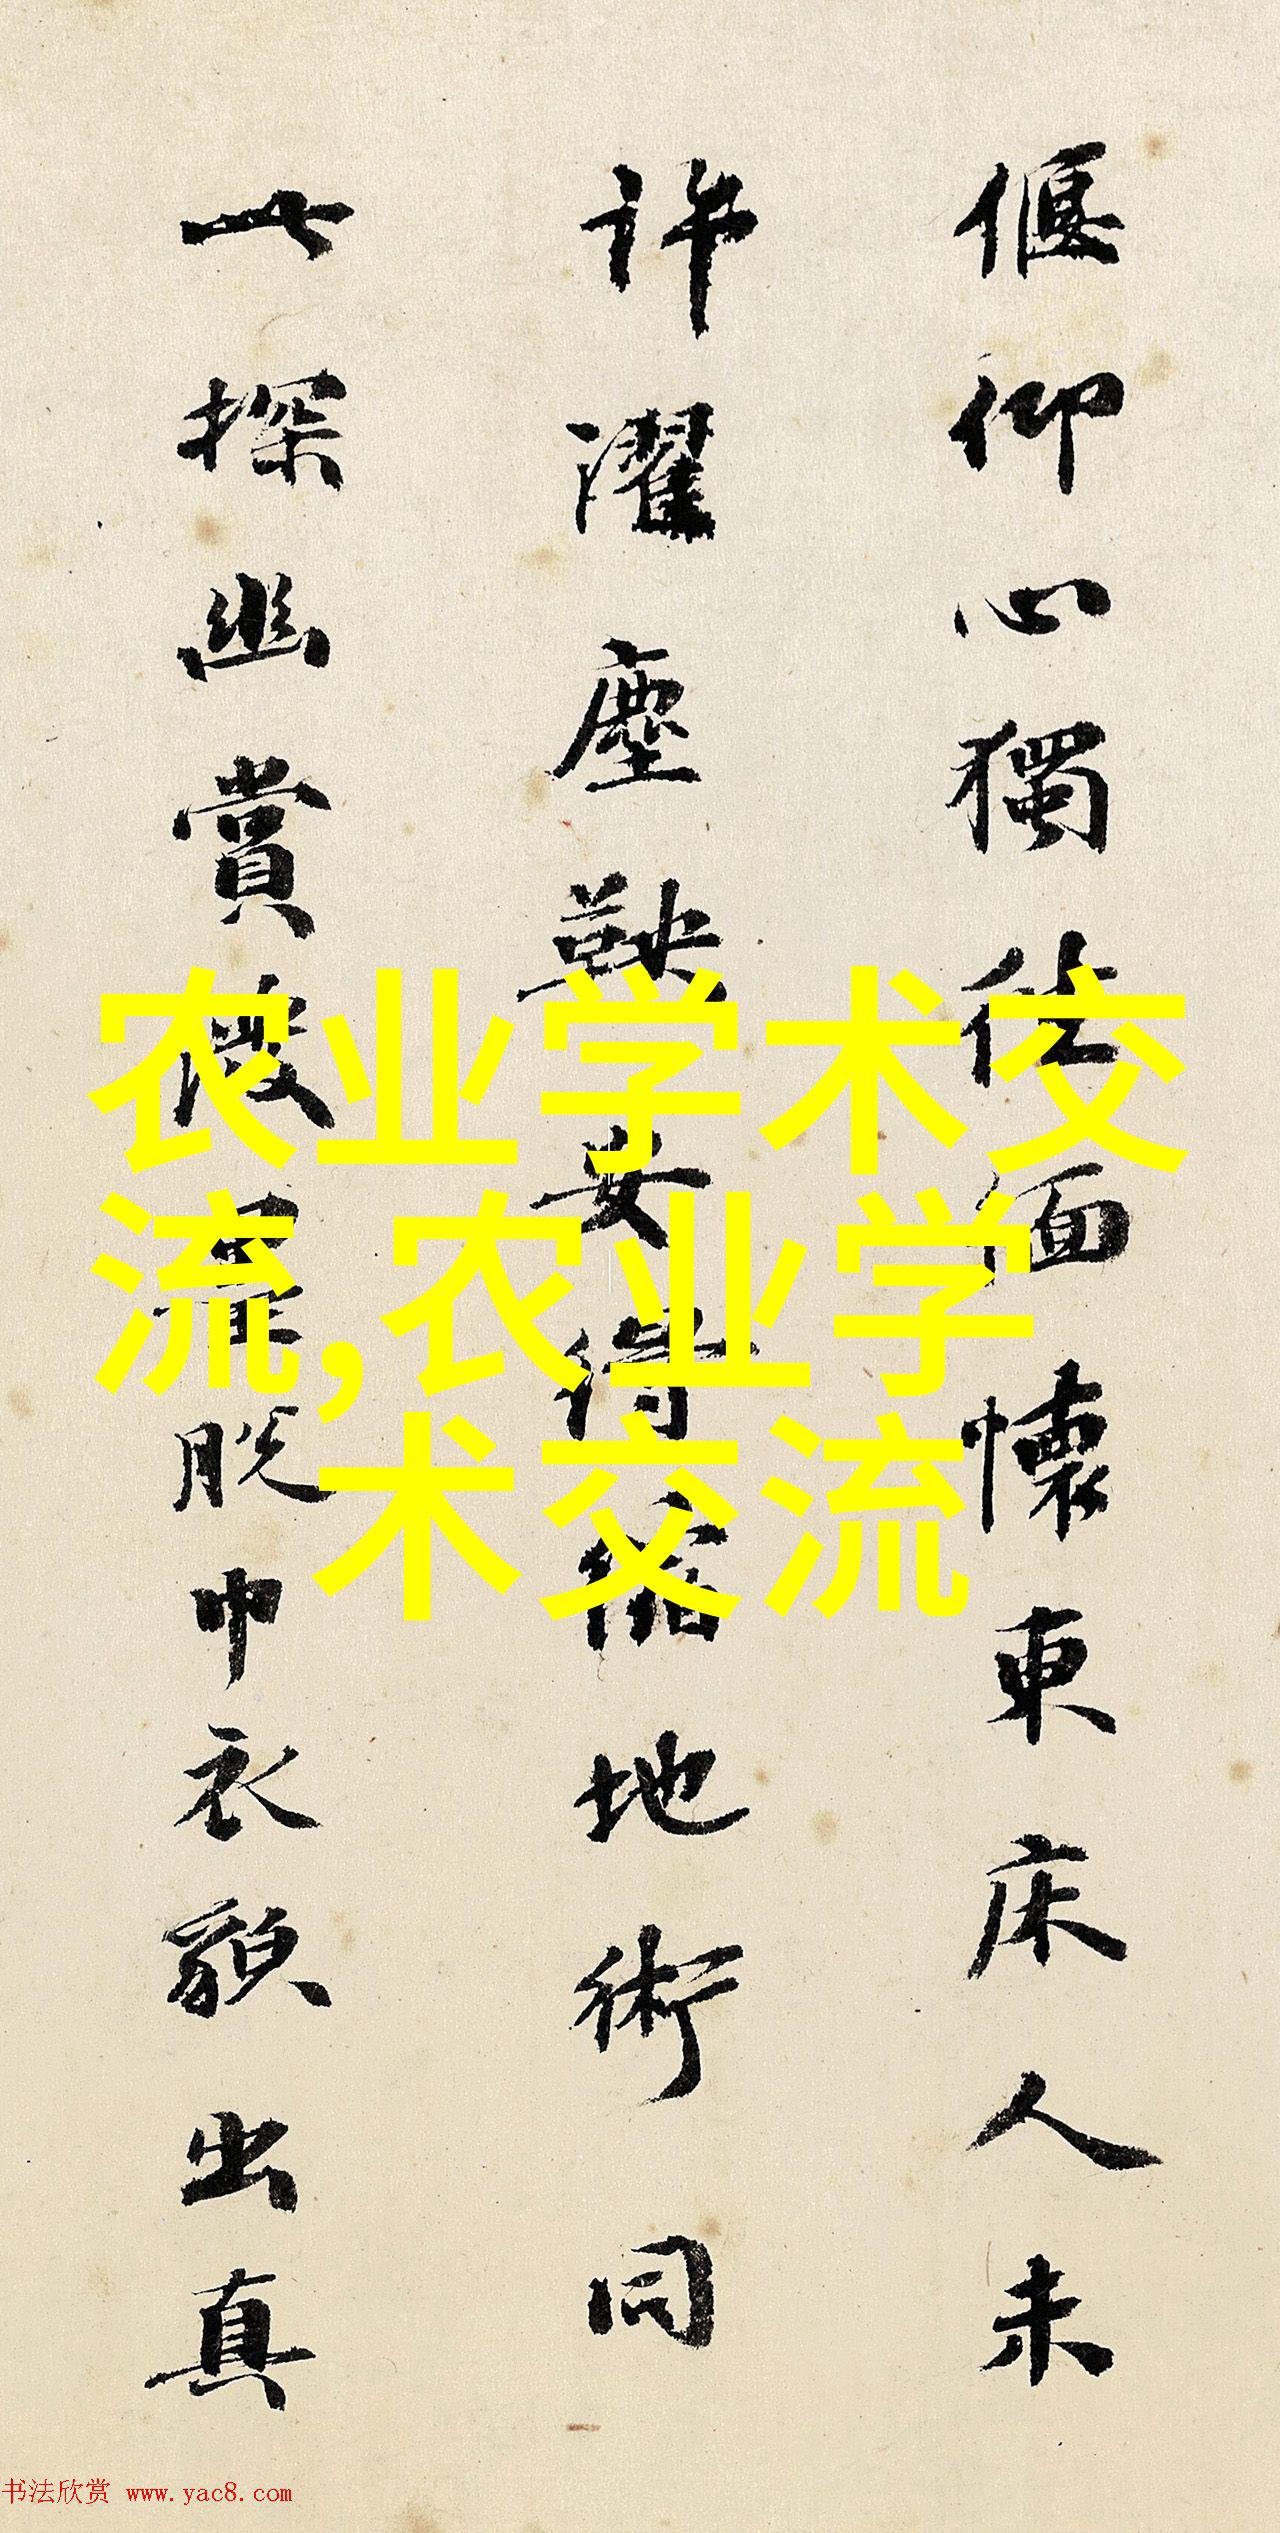 偃仰心獨往緬懷東床人未
許濯塵鞅安得縮地術同
此探幽賞微君脫巾衣貌出真
农业学术交
流,农业学
术交流
书法欣赏 www.yac8.com